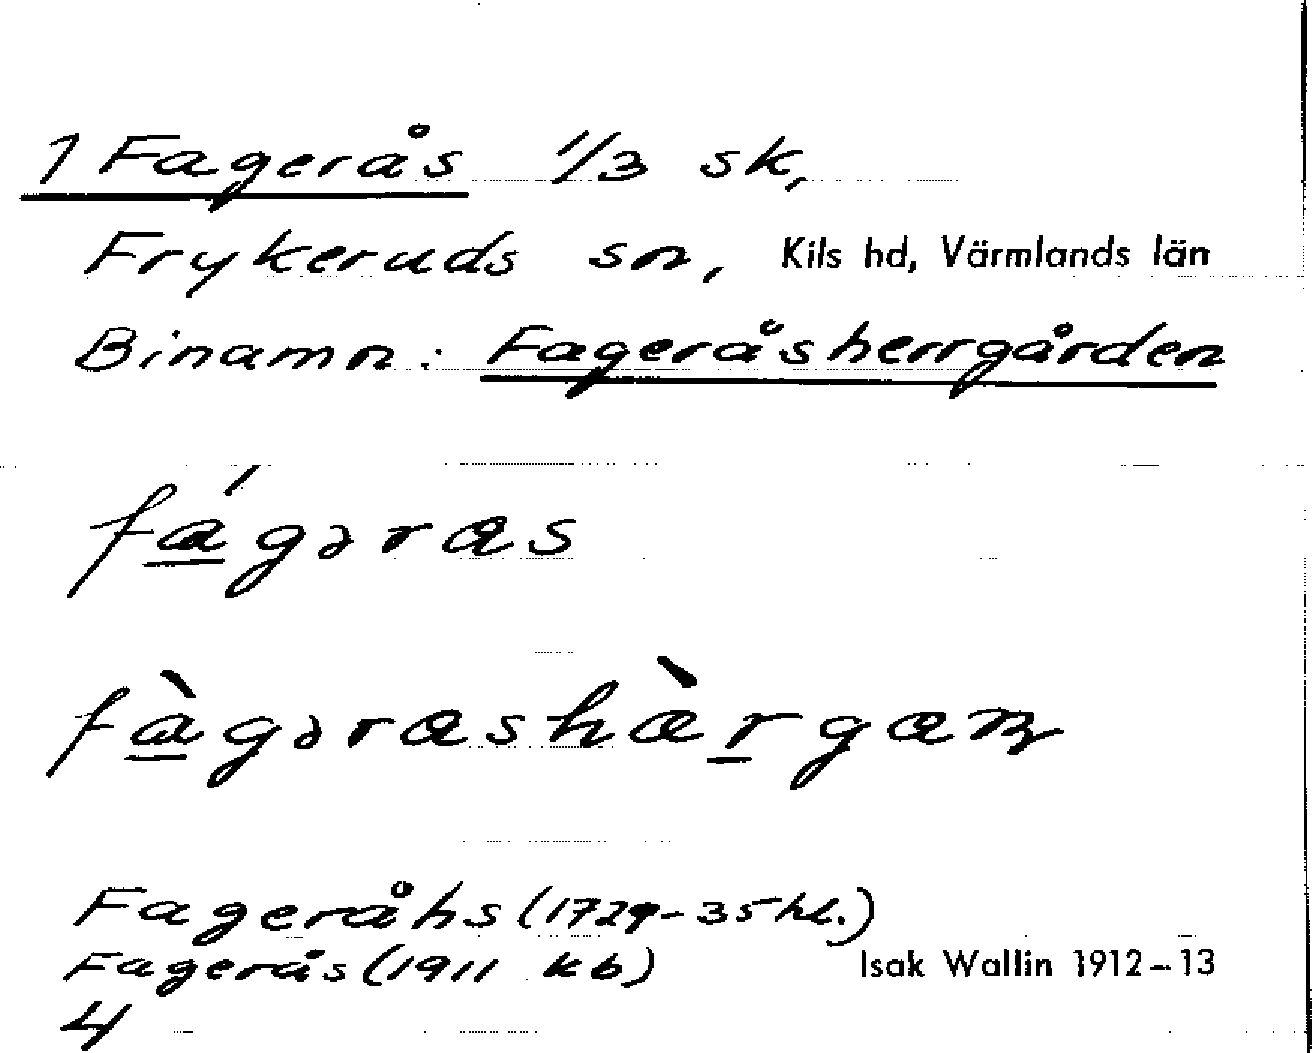 1 Fagerås 1/3 sk,
Frykeruds sn, Kils hd, Värmlands län
Binamn: Fageråsherrgården
fá̲gəras
fà̲gərashàr̲gaɲ
Fageråhs (1729-35 hl.)
Fagerås (1911 kb) Isak Wallin 1912-13
4